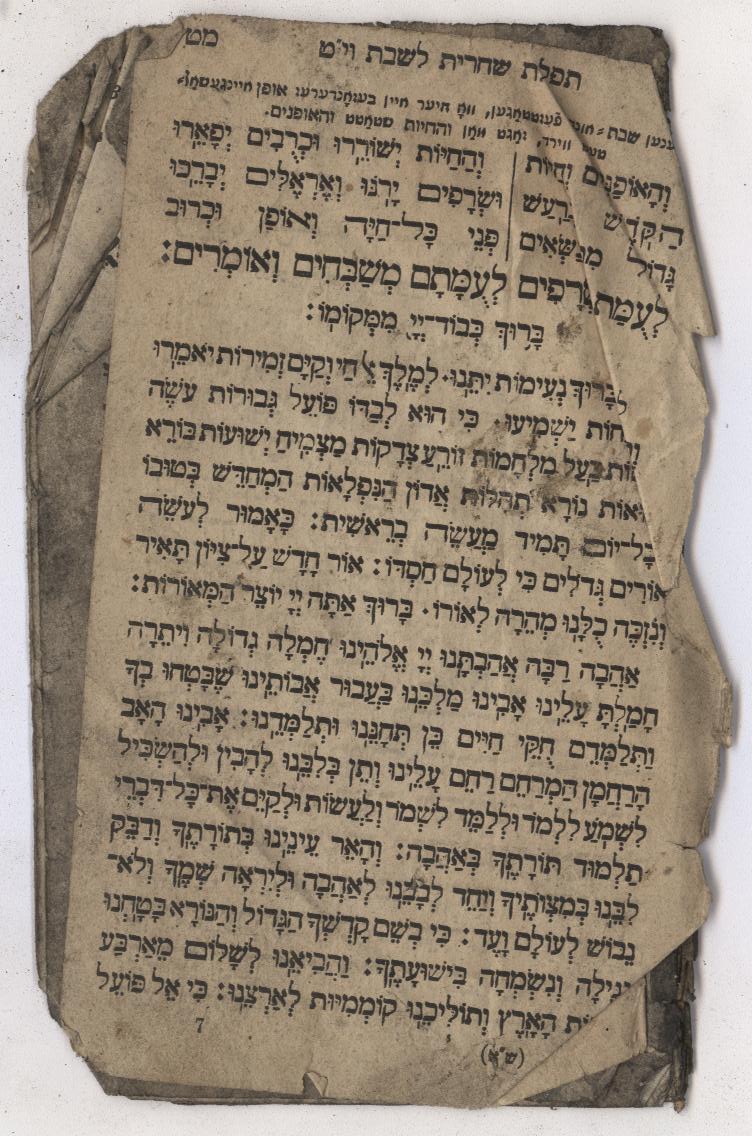 תפלת שחרית לשבת וי״ט מט
שבת וווּ היער קיין בעזאָנדערער אופן
ווירד, זאָגט מאַן והחיות שטאַטט והאופנים.
וְהָאוֹפַנִּים וְחַיּוֹת וְהַחַיּוֹת יְשׁוֹרֵרוּ וּכְרֻבִים יְפָאֵרוּ
הַקֹּדֶשׁ בְּרַעַשׁ וּשְׂרָפִים יָרֹנּוּ וְאֶרְאֶלִּים יְבָרֵכוּ
גָּדוֹל מִתְנַשְּׂאִים פְּנֵי כָּל־חַיָּה וְאוֹפַן וּכְרוּב
לְעֻמַּת שְׂרָפִים לְעֻמָּתָם מְשַׁבְּחִים וְאוֹמְרִים:
בָּרוּךְ כְּבוֹד־יְיָ מִמְּקוֹמוֹ:
בָּרוּךְ נְעִימוֹת יִתֵּנוּ. לְמֶלֶךְ אֵל חַי וְקַיָּם זְמִירוֹת יֹאמֵרוּ
יַשְׁמִיעוּ. כִּי הוּא לְבַדּוֹ פּוֹעֵל גְּבוּרוֹת עֹשֶׂה
בַּעַל מִלְחָמוֹת זוֹרֵעַ צְדָקוֹת מַצְמִיחַ יְשׁוּעוֹת בּוֹרֵא
נוֹרָא תְהִלּוֹת אֲדוֹן הַנִּפְלָאוֹת הַמְחַדֵּשׁ בְּטוּבוֹ
בְּכָל־יוֹם תָּמִיד מַעֲשֵׂה בְרֵאשִׁית: כָּאָמוּר לְעֹשֵׂה
אוֹרִים גְּדוֹלִים כִּי לְעוֹלָם חַסְדּוֹ: אוֹר חָדָשׁ עַל־צִיּוֹן תָּאִיר
וְנִזְכֶּה כֻלָּנוּ מְהֵרָה לְאוֹרוֹ. בָּרוּךְ אַתָּה יְיָ יוֹצֵר הַמְּאוֹרוֹת:
אַהֲבָה רַבָּה אֲהַבְתָּנוּ יְיָ אֱלֹהֵינוּ חֶמְלָה גְדוֹלָה וִיתֵרָה
חָמַלְתָּ עָלֵינוּ אָבִינוּ מַלְכֵּנוּ בַּעֲבוּר אֲבוֹתֵינוּ שֶׁבָּטְחוּ בְךָ
וַתְּלַמְּדֵם חֻקֵּי חַיִּים כֵּן תְּחָנֵּנוּ וּתְלַמְּדֵנוּ: אָבִינוּ הָאָב
הָרַחֲמָן הַמְרַחֵם רַחֵם עָלֵינוּ וְתֵן בְּלִבֵּנוּ לְהָבִין וּלְהַשְׂכִּיל
לִשְׁמֹעַ לִלְמֹד וּלְלַמֵּד לִשְׁמֹר וְלַעֲשׂוֹת וּלְקַיֵּם אֶת־כָּל־דִּבְרֵי
תַלְמוּד תּוֹרָתֶךָ בְּאַהֲבָה: וְהָאֵר עֵינֵינוּ בְּתוֹרָתֶךָ וְדַבֵּק
לִבֵּנוּ בְּמִצְוֹתֶיךָ וְיַחֵד לְבָבֵנוּ לְאַהֲבָה וּלְיִרְאָה שְׁמֶךָ וְלֹא־
נֵבוֹשׁ לְעוֹלָם וָעֶד: כִּי בְשֵׁם קָדְשְׁךָ הַגָּדוֹל וְהַנּוֹרָא בָּטָחְנוּ
נָגִילָה וְנִשְׂמְחָה בִּישׁוּעָתֶךָ: וַהֲבִיאֵנוּ לְשָׁלוֹם מֵאַרְבַּע
הָאָרֶץ וְתוֹלִיכֵנוּ קוֹמְמִיּוּת לְאַרְצֵנוּ: כִּי אֵל פּוֹעֵל
(ש״א) 7